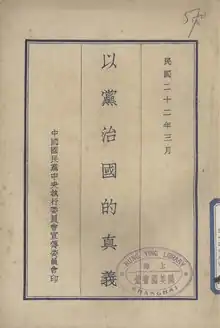 民國二十二年三月
以黨治國的真義
中國國民黨中央執行委員會宣傳委員會印
HUNG YING LIBRARY
上海
SHANGHAI